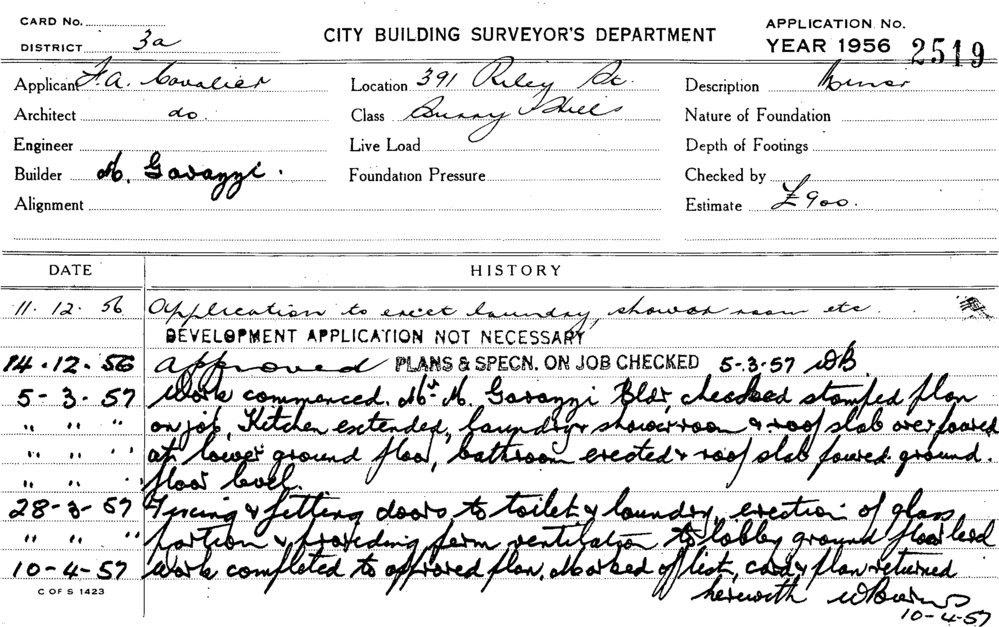 CARD No.
DISTRICT 3a
CITY BUILDING SURVEYOR'S DEPARTMENT
APPLICATION No.
YEAR 1956 2519
Applicant F.A. Cavalier
Location 391 Riley St.
Description Minor
Architect do
Class Surry Hills
Nature of Foundation
Engineer
Live Load
Depth of Footings
Builder M. Gavazzi.
Foundation Pressure
Checked by
Alignment
Estimate £900.
DATE HISTORY
11.12.56 Application to erect laundry, shower room etc.
DEVELOPMENT APPLICATION NOT NECESSARY
14.12.56 Approved PLANS & SPECN. ON JOB CHECKED 5-3-57 WB.
5-3-57 Work commenced. Mr M. Gavazzi Bldr, checked stamped plan
" " " on job, Kitchen extended, laundry & shower room & roof slab over poured
" " " at lower ground floor, bathroom erected & roof slab poured ground
" " " floor level.
28-3-57 Fixing & fitting doors to toilet & laundry, erection of glass
" " " & providing perm ventilation to lobby ground floor level
10-4-57 Work completed to approved plan. Marked off list, card & plan returned
herewith
10-4-57
C OF S 1423